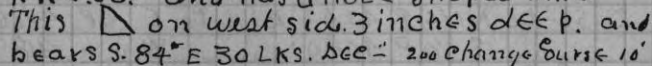 This on west sid. 3 inches dEEp. and
bears S. 84° E 30 LKS. Dec = 200 change Course 10'